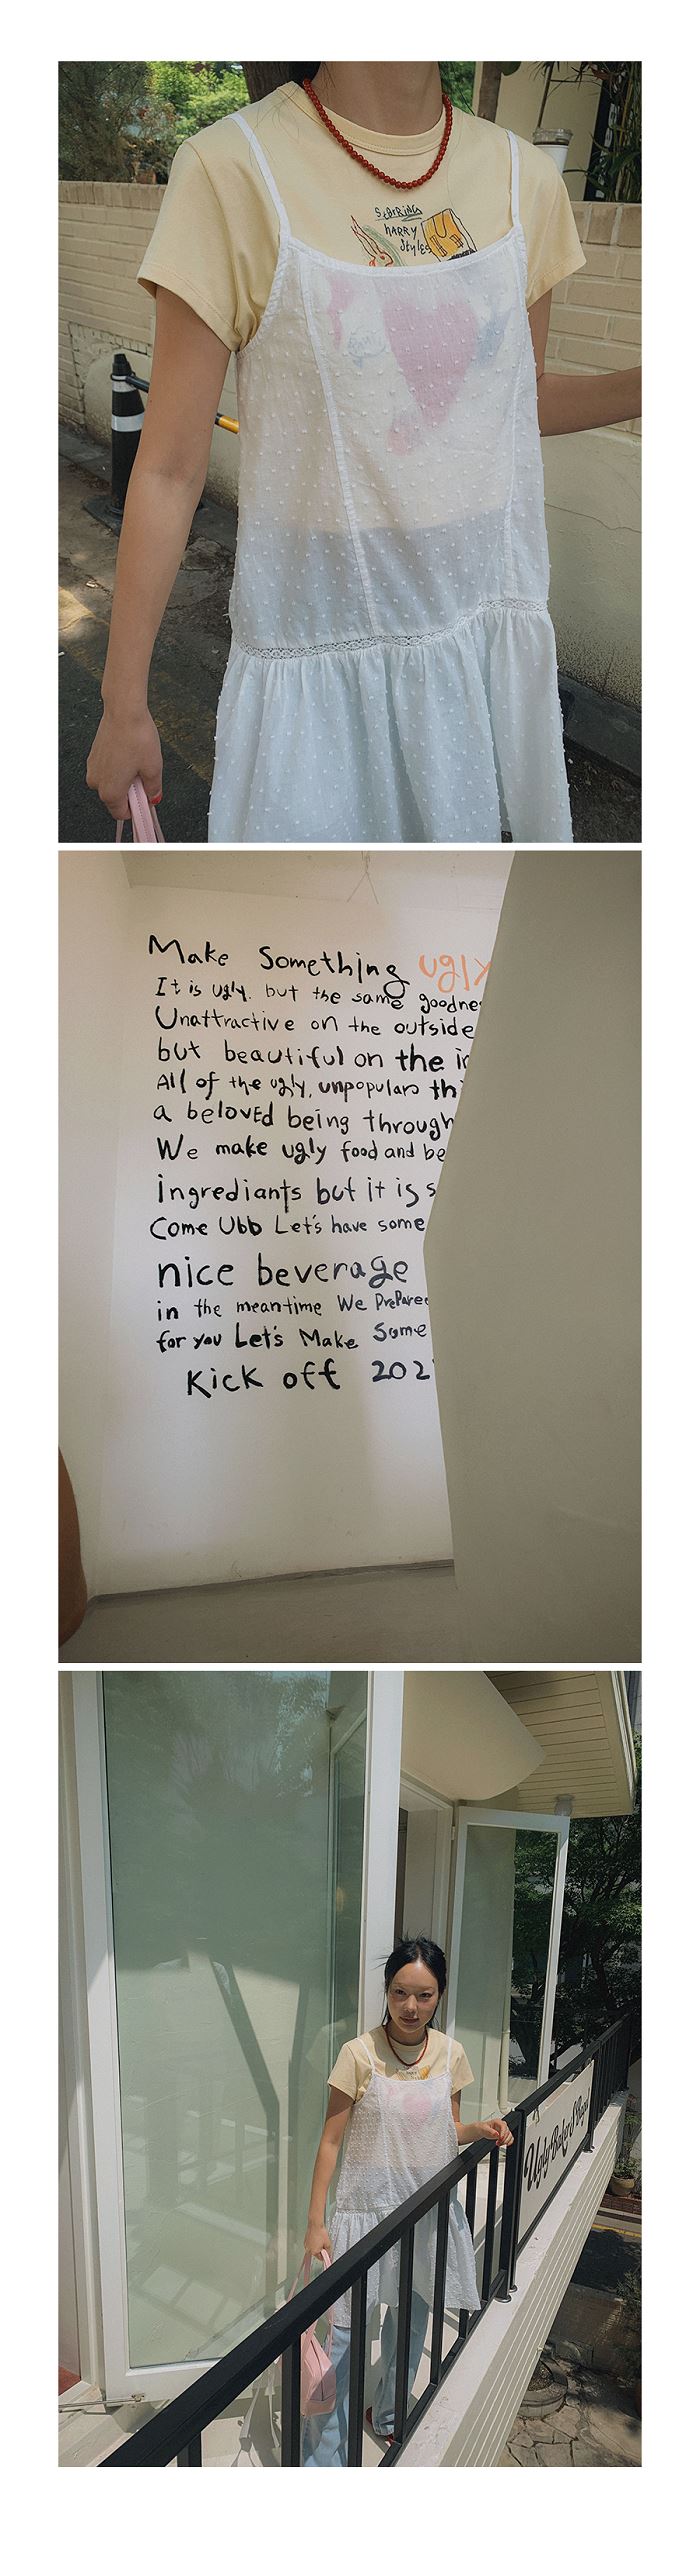 Starring
HARRY
Styles
Make Something ugly
It is ugly. but the same
Unattractive on the outside
but beautiful on the
All of the ugly, unpopulars
a beloved being through
We make ugly food and
ingrediants but it is
Come Ubb Let's have some
nice beverage
in the meantime We
for you Let's Make Some
Kick off
Ugly